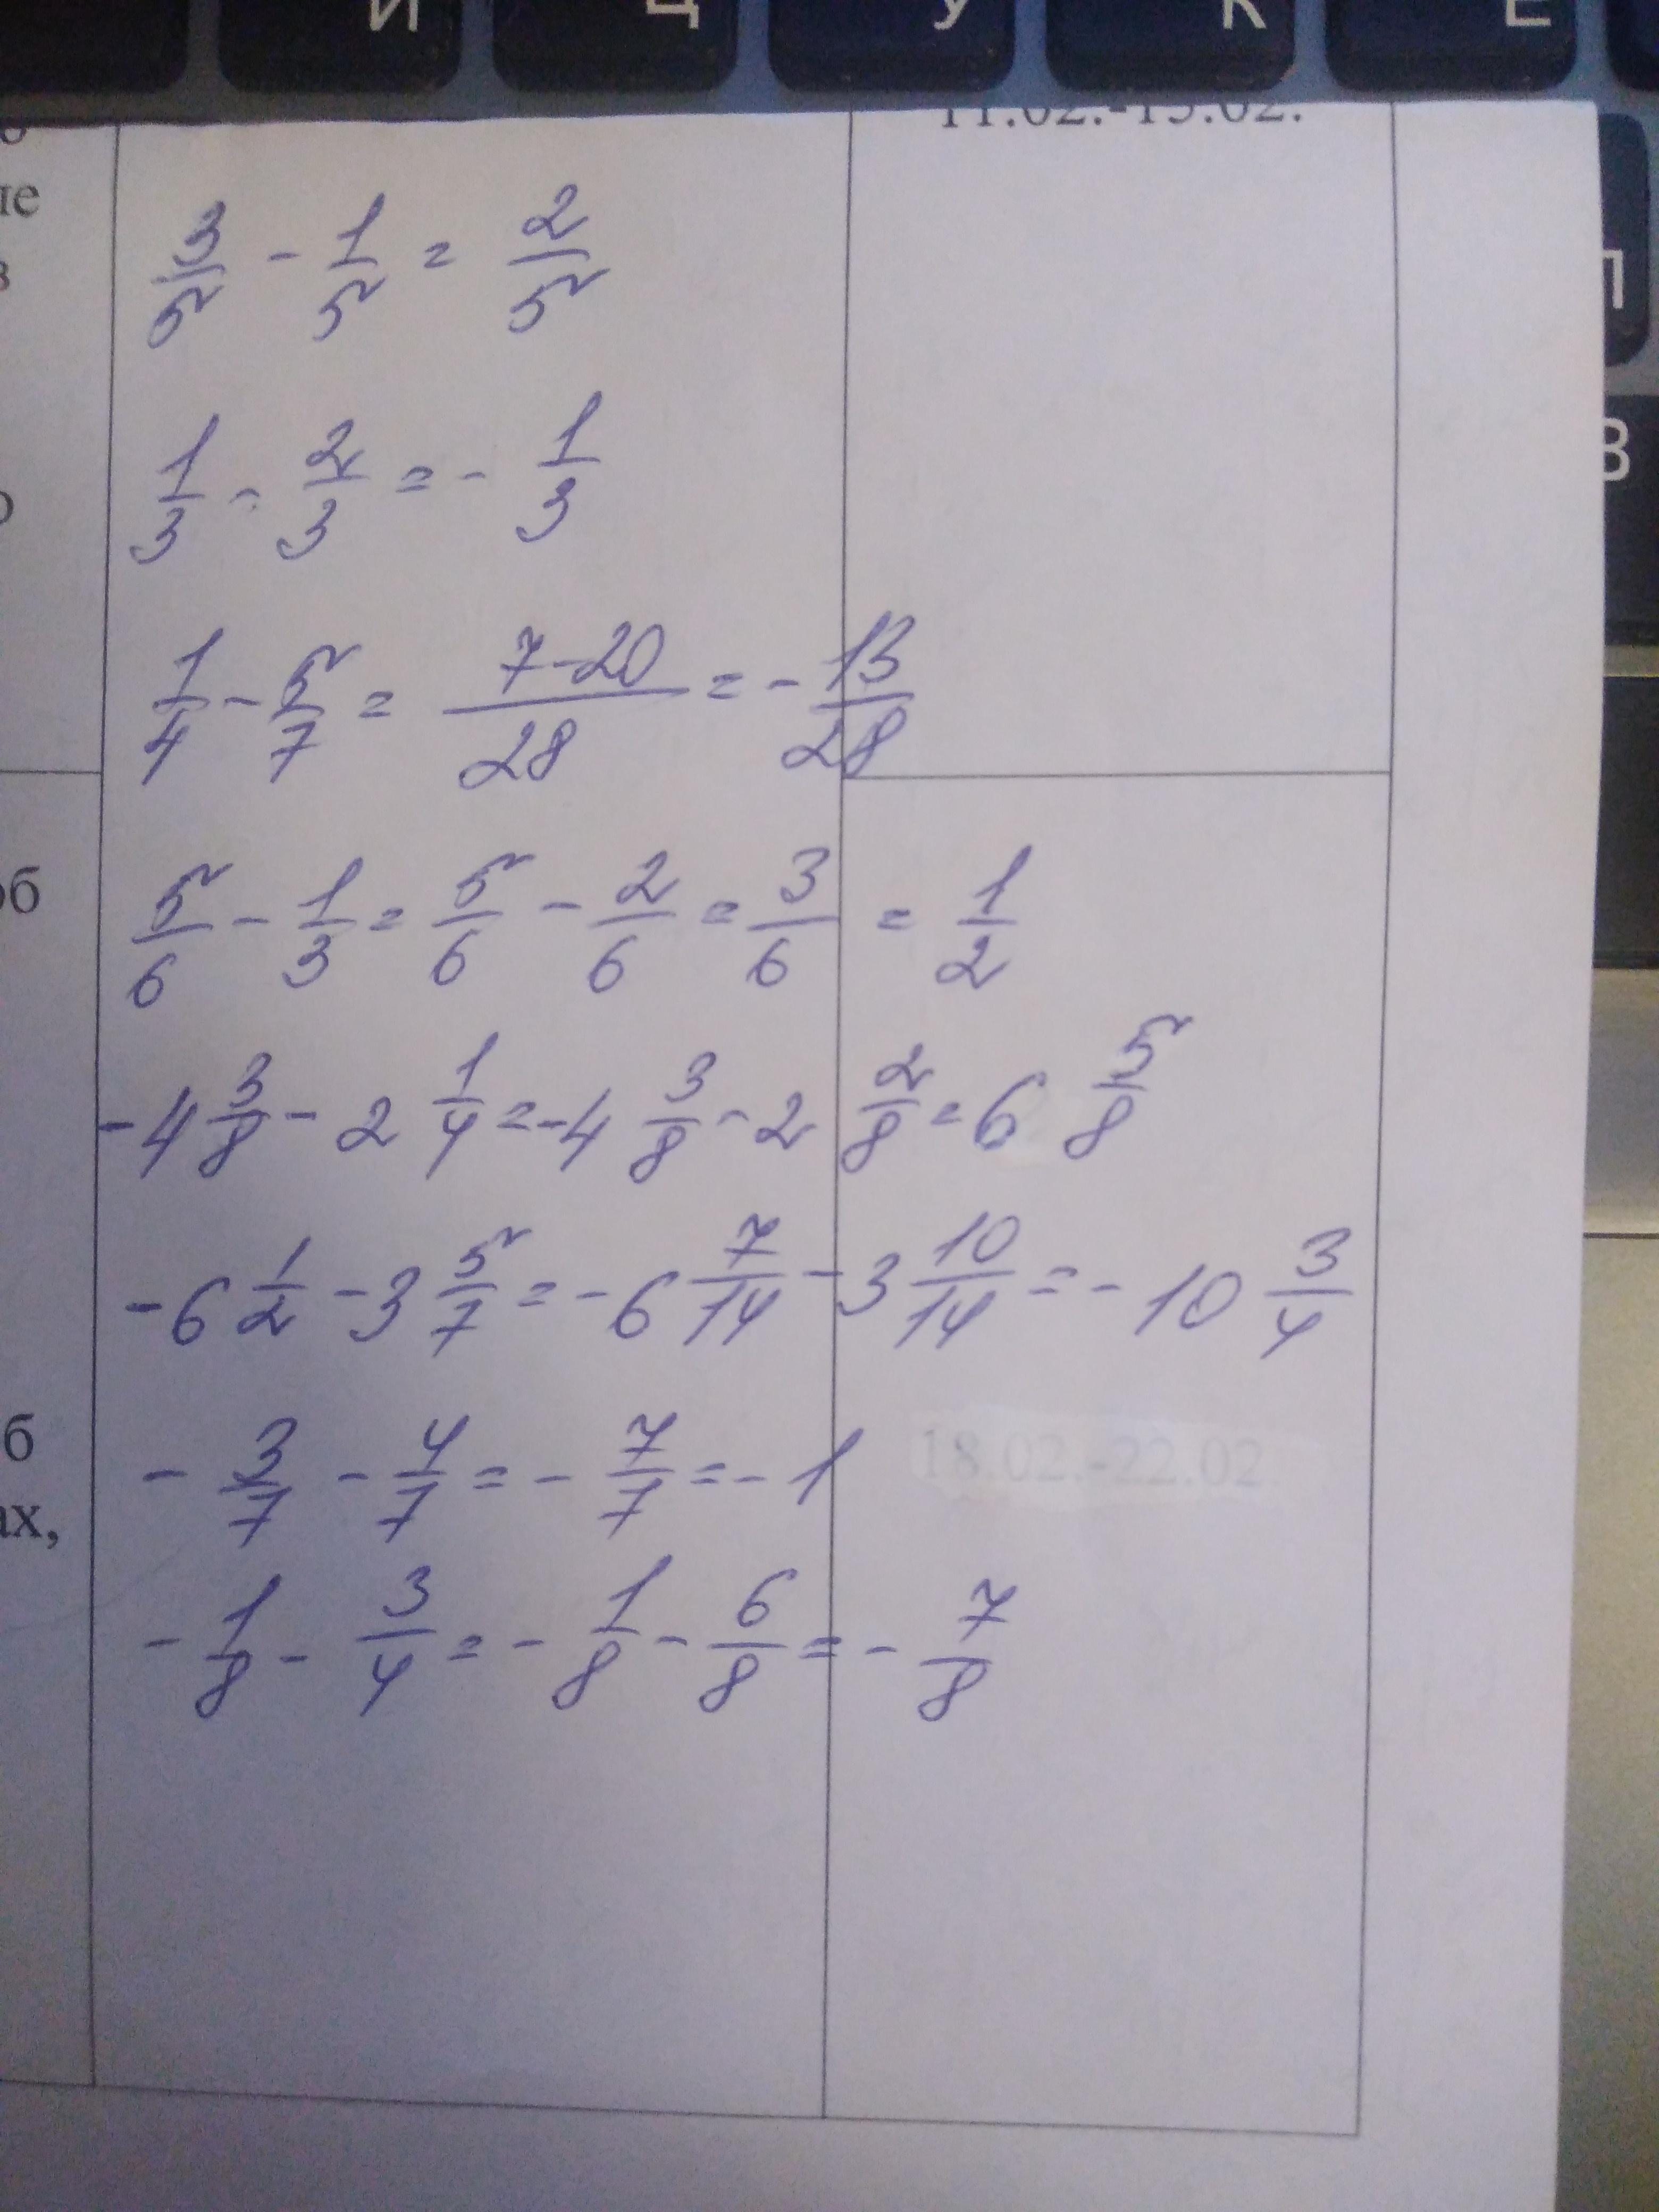 Й Ц У К Е
11.02.-15.02.
3/5 - 1/5 = 2/5
1/3 - 2/3 = - 1/3
1/4 - 5/7 = 7-20/28 = - 13/28
об
5/6 - 1/3 = 5/6 - 2/6 = 3/6 = 1/2
-4 3/8 - 2 1/4 = -4 3/8 - 2 2/8 = 6 5/8
-6 1/2 - 3 5/7 = -6 7/14 - 3 10/14 = -10 3/4
б
- 3/7 - 4/7 = - 7/7 = - 1
18.02.-22.02.
ах,
- 1/8 - 3/4 = - 1/8 - 6/8 = - 7/8